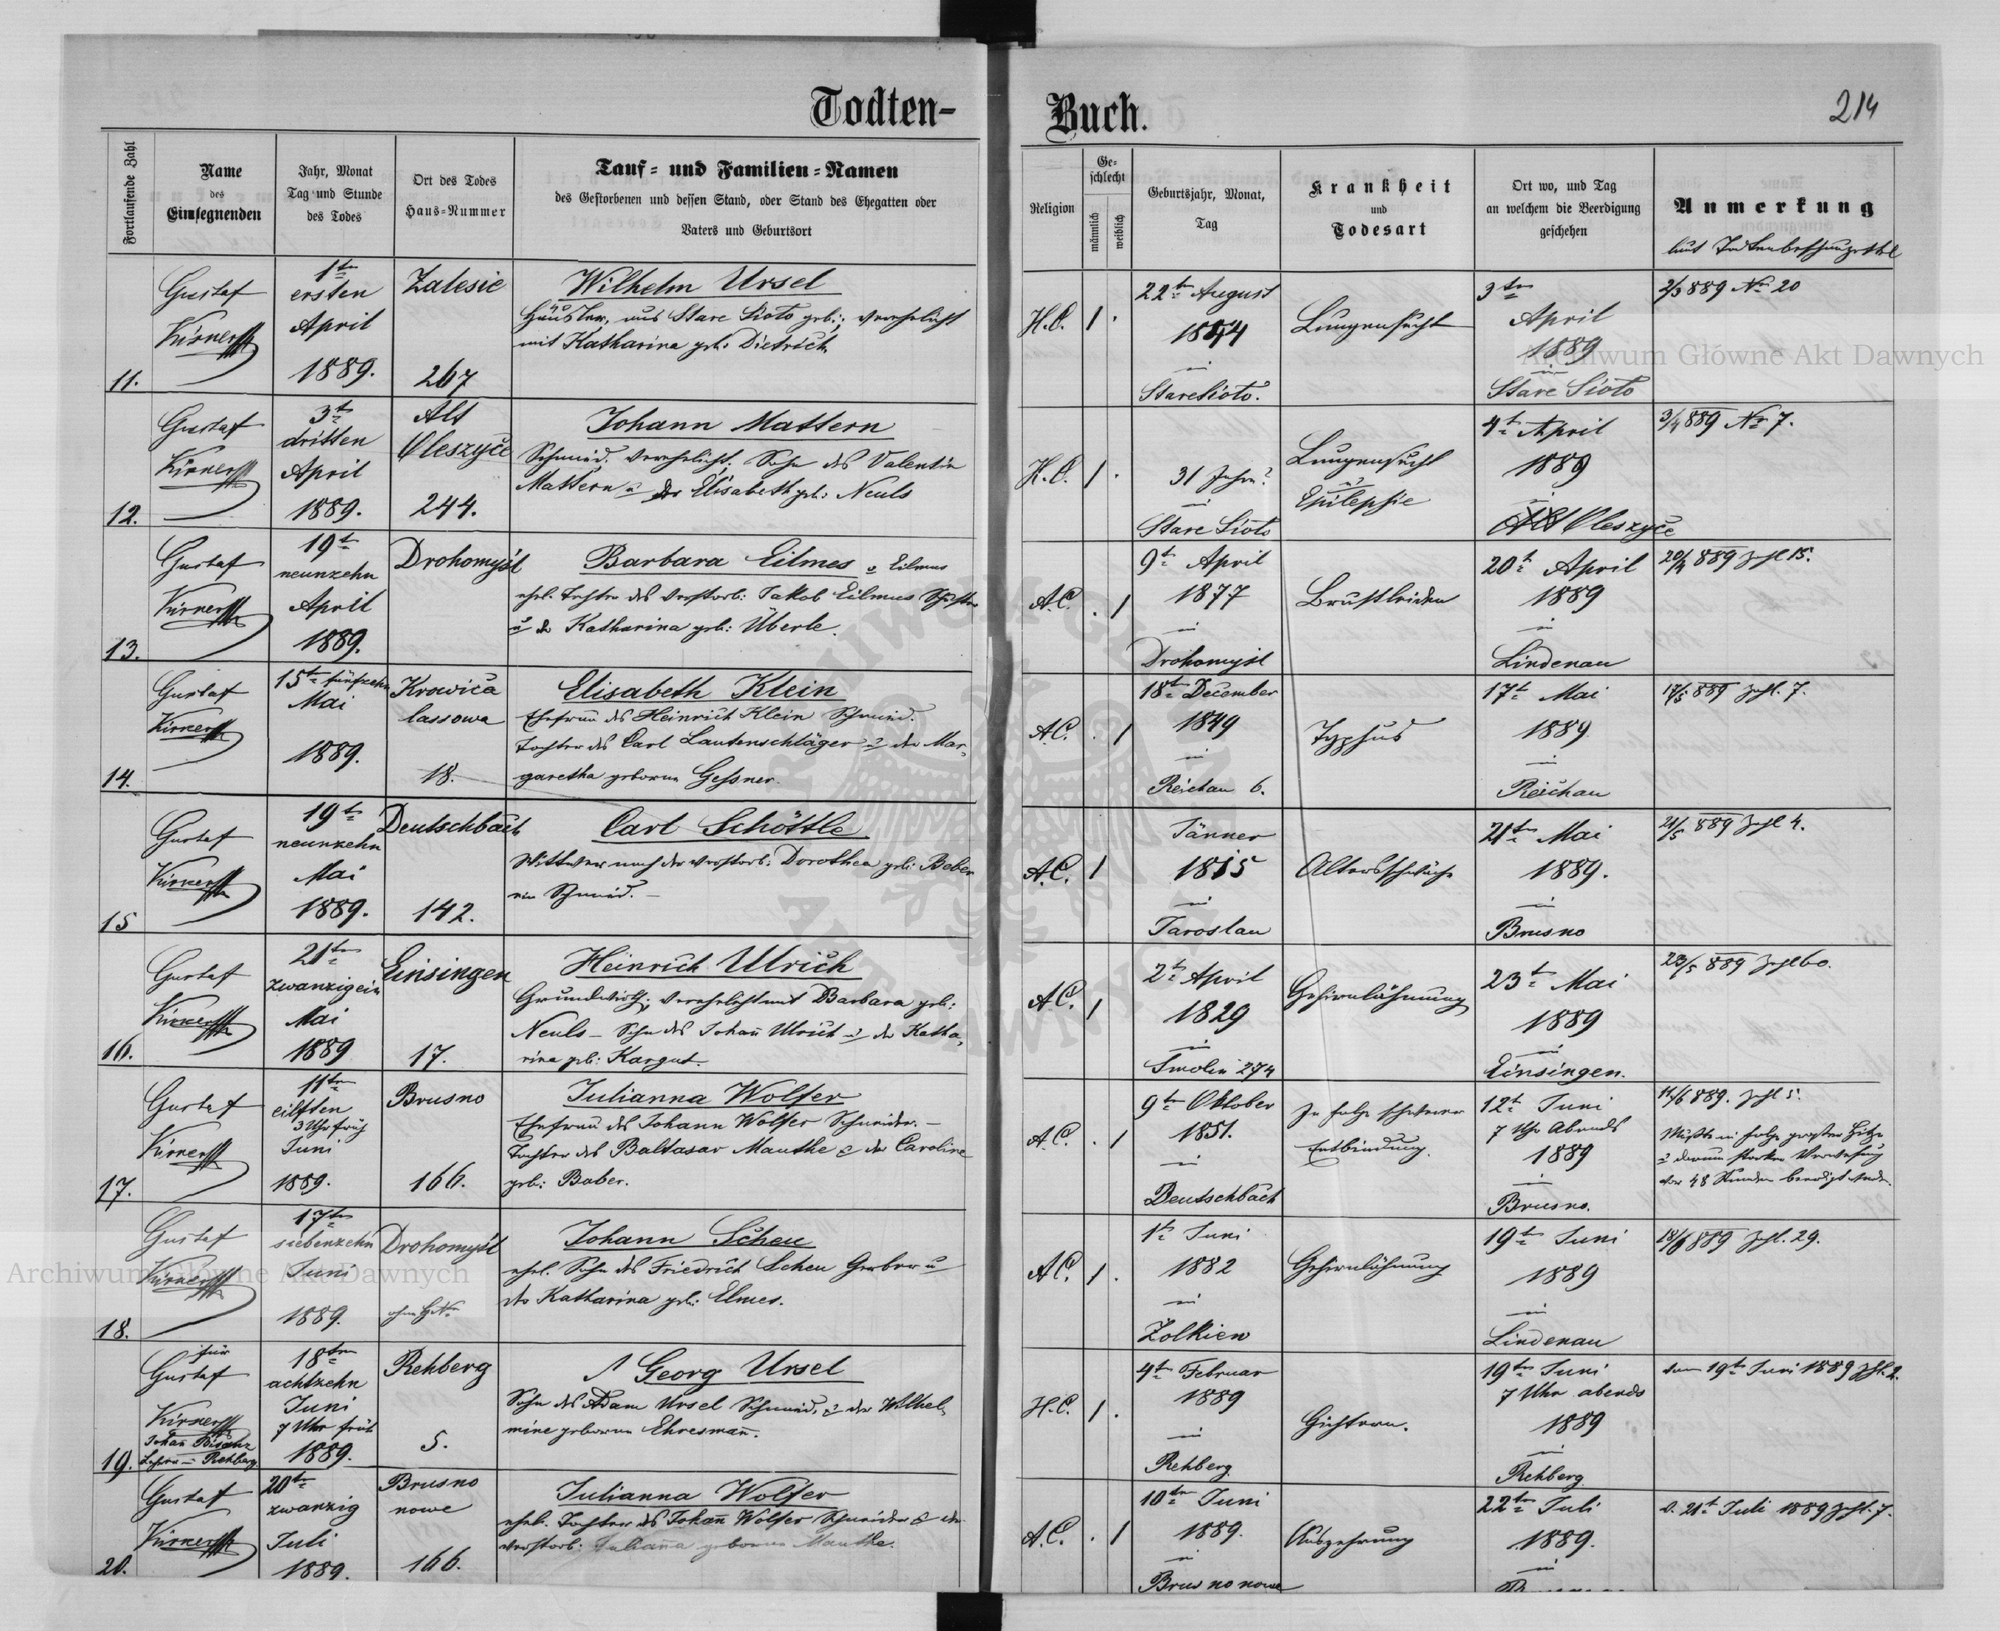 Todten-
Buch.
214
Fortlaufende Zahl
Name
des
Einsegnenden
Jahr, Monat
Tag und Stunde
des Todes
Ort des Todes
Haus-Nummer
Tauf- und Familien-Namen
des Gestorbenen und dessen Stand, oder Stand des Ehegatten oder
Vaters und Geburtsort
Religion
Ge-
schlecht
männlich
weiblich
Geburtsjahr, Monat,
Tag
Krankheit
und
Todesart
Ort wo, und Tag
an welchem die Beerdigung
geschehen
Anmerkung
laut
11.
Gustaf
1te
ersten
April
1889.
Zalesie
267
Wilhelm Ursel
Häusler, aus Stare Sioło geb:, verehelicht
mit Katharina geb: Dietrich
H.C.
1
.
22te August
1844
in
Stare Sioło.
Lungensucht
3te
April
1889
in
Stare Sioło
889 No 20
12.
Gustaf
3te
dritten
April
1889.
Alt
Oleszyce
244.
Johann Mattern
Schmid. verehelicht. Sohn des Valentin
Mattern u der Elisabeth geb: Neuls
H.C.
1
.
31 Jahre
in
Stare Sioło
Lungensucht
u
Epilepsie
4te April
1889
in
Alt Oleszyce
3/4 889 No 7.
13.
Gustaf
19te
neunzehn
April
1889.
Drohomyśl
Barbara Eilmes Eilmus
ehel. Tochter des verstorb: Jakob Eilmes
u der Katharina geb: Überle.
A.C.
.
1
9te April
1877
in
Drohomyśl
Brustleiden
20te April
1889
in
Lindenau
20/4 889 Zahl 15.
14.
Gustaf
15te fünfzehn
Mai
1889.
Krowica
lassowa
18.
Elisabeth Klein
Ehefrau des Heinrich Klein Schmid.
Tochter des Carl Lautenschläger u der Mar-
garetha geborne Gessner.
A.C.
.
1
18te December
1849
in
Reichau 6.
Typhus
17te Mai
1889
in
Reichau
17/5 889 Zahl. 7.
15
Gustaf
19te
neunzehn
Mai
1889.
Deutschbach
142.
Carl Schöttle
Wittwer nach der verstorb: Dorothea geb: Beber
ein Schmid. –
A.C.
1
Jänner
1815
in
Jaroslau
Altersschwäche
21te Mai
1889.
in
Brusno
21/5 889 Zahl 4.
16.
Gustaf
21te
zwanzigein
Mai
1889
Einsingen
17.
Heinrich Ulrich
Grundwirth, verehelicht mit Barbara geb:
Neuls – Sohn des Johañ Ulrich u der Katha-
rina geb: Kargut.
A.C.
1
2te April
1829
in
Smolin 274
Gehirnlähmung
23te Mai
1889
in
Einsingen.
23/5 889 Zahl 60.
17.
Gustaf
11te
eilften
3 Uhr früh
Juni
1889.
Brusno
166.
Julianna Wolfer
Ehefrau des Johann Wolfer Schneider. –
Tochter des Baltasar Manthe & der Caroline
geb: Baber.
A.C.
.
1
9te Oktober
1851.
in
Deutschbach
In folge schwerer
Entbindung.
12te Juni
7 Uhr Abends
1889
in
Brusno.
11/6 889. Zahl 5.
Mußte in folge großer Hitze
u darum starken Verwesung
vor 48 Stunden beerdigt werden.
18.
Gustaf
17te
siebenzehn
Juni
1889.
Drohomyśl
ohne H No
Johann Scheu
ehel. Sohn des Friedrich Scheu Gerber u
der Katharina geb: Elmes.
A.C.
1
.
1te Juni
1882
in
Zolkiew
Gehirnlähmung
19te Juni
1889
in
Lindenau
18/6 889 Zahl. 29.
19.
für
Gustaf
Johañ Bisanz
Lehrer in Rehberg
18te
achtzehn
Juni
7 Uhr früh
1889.
Rehberg
5.
Georg Ursel
Sohn des Adam Ursel Schmid, & der Wilhel-
mine geborene Ehresmañ.
H.C.
1
.
4te Februar
1889
in
Rehberg
Gichtern.
19te Juni
7 Uhr abends
1889
in
Rehberg
dem 19te Juni 1889 Zhl. 2.
20.
Gustaf
20te
zwanzig
Juli
1889.
Brusno
nowe
166.
Julianna Wolfer
ehel. Tochter des Johañ Wolfer Schneider & der
verstorb: Juliaña geborene Manthe.
A.C.
.
1
10te Juni
1889.
in
Brusno nowe
Auszehrung
22te Juli
1889.
in
D. 21te Juli 1889 Zhl. 7.
Archiwum Główne Akt Dawnych
Archiwum Główne Akt Dawnych